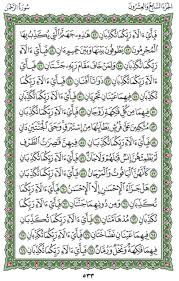 الجزء السابع والعشرون سورة الرحمن
فَبِأَيِّ ءَالَآءِ رَبِّكُمَا تُكَذِّبَانِ ٤٢ هَٰذِهِۦ جَهَنَّمُ ٱلَّتِي يُكَذِّبُ بِهَا
ٱلْمُجْرِمُونَ ٤٣ يَطُوفُونَ بَيْنَهَا وَبَيْنَ حَمِيمٍ ءَانٍ ٤٤ فَبِأَيِّ
ءَالَآءِ رَبِّكُمَا تُكَذِّبَانِ ٤٥ وَلِمَنْ خَافَ مَقَامَ رَبِّهِۦ جَنَّتَانِ ٤٦ فَبِأَيِّ
ءَالَآءِ رَبِّكُمَا تُكَذِّبَانِ ٤٧ ذَوَاتَآ أَفْنَانٍ ٤٨ فَبِأَيِّ ءَالَآءِ رَبِّكُمَا تُكَذِّبَانِ ٤٩
فِيهِمَا عَيْنَانِ تَجْرِيَانِ ٥٠ فَبِأَيِّ ءَالَآءِ رَبِّكُمَا تُكَذِّبَانِ ٥١ فِيهِمَا
مِن كُلِّ فَٰكِهَةٍ زَوْجَانِ ٥٢ فَبِأَيِّ ءَالَآءِ رَبِّكُمَا تُكَذِّبَانِ ٥٣
مُتَّكِـِٔينَ عَلَىٰ فُرُشٍۭ بَطَآئِنُهَا مِنْ إِسْتَبْرَقٍ وَجَنَى ٱلْجَنَّتَيْنِ دَانٍ ٥٤
فَبِأَيِّ ءَالَآءِ رَبِّكُمَا تُكَذِّبَانِ ٥٥ فِيهِنَّ قَٰصِرَٰتُ ٱلطَّرْفِ لَمْ
يَطْمِثْهُنَّ إِنسٌ قَبْلَهُمْ وَلَا جَآنٌّ ٥٦ فَبِأَيِّ ءَالَآءِ رَبِّكُمَا تُكَذِّبَانِ ٥٧
كَأَنَّهُنَّ ٱلْيَاقُوتُ وَٱلْمَرْجَانُ ٥٨ فَبِأَيِّ ءَالَآءِ رَبِّكُمَا تُكَذِّبَانِ ٥٩
هَلْ جَزَآءُ ٱلْإِحْسَٰنِ إِلَّا ٱلْإِحْسَٰنُ ٦٠ فَبِأَيِّ ءَالَآءِ رَبِّكُمَا
تُكَذِّبَانِ ٦١ وَمِن دُونِهِمَا جَنَّتَانِ ٦٢ فَبِأَيِّ ءَالَآءِ رَبِّكُمَا تُكَذِّبَانِ ٦٣
مُدْهَآمَّتَانِ ٦٤ فَبِأَيِّ ءَالَآءِ رَبِّكُمَا تُكَذِّبَانِ ٦٥
فِيهِمَا عَيْنَانِ نَضَّاخَتَانِ ٦٦ فَبِأَيِّ ءَالَآءِ رَبِّكُمَا تُكَذِّبَانِ ٦٧
فِيهِمَا فَٰكِهَةٌ وَنَخْلٌ وَرُمَّانٌ ٦٨
٥٣٣